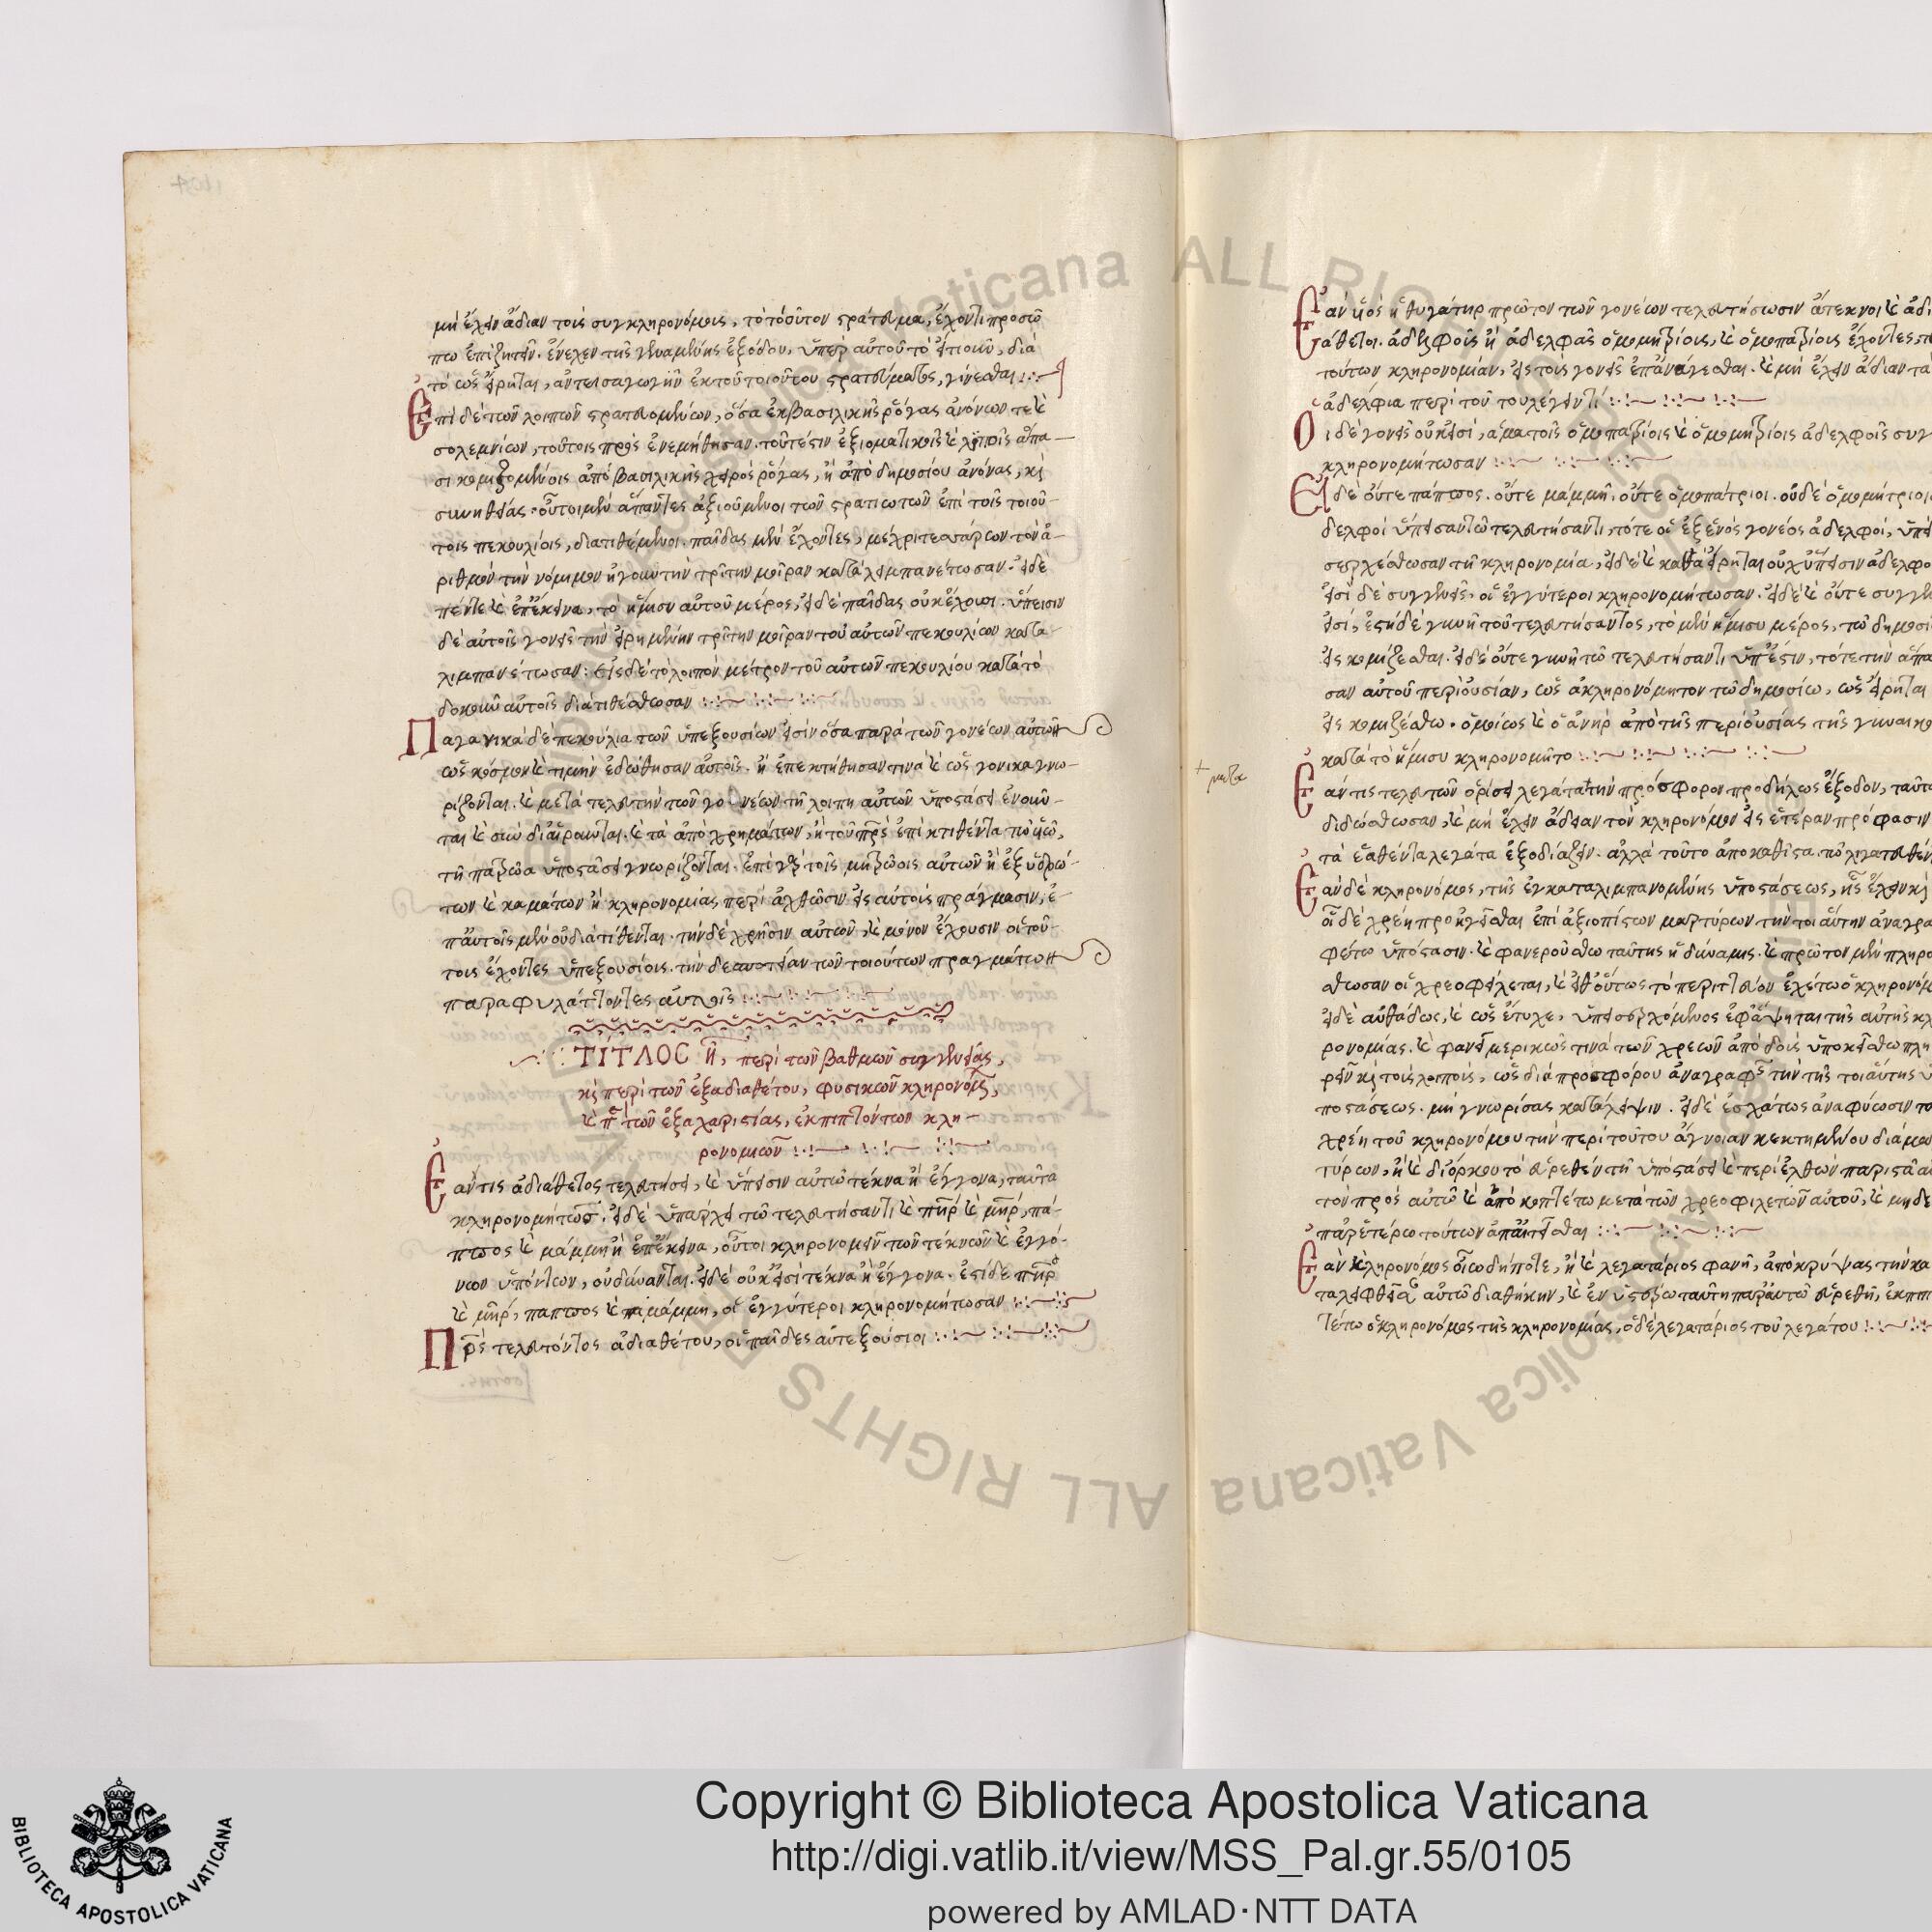 μὴ ἔχειν ἄδιαν τοῖς συγκληρονόμοις, τὸ τοσοῦτον στράτευμα, ἔχοντι προσώ
πω ἐπιζητεῖν. ἕνεκεν τῆς γεναμένης ἐξόδου, ὑπὲρ αὐτοῦ τὸ διὰ
τὸ ὡς εἴρηται, ἀντεισαγωγὴν ἐκ τοῦ τοιούτου στρατεύματος, γίνεσθαι
Ἐπὶ δὲ τῶν λοιπῶν στρατευομένων, ὅσα ἐκ βασιλικῆς ῥόγας ἀνόνων τε καὶ
σολεμνίων, τούτοις ἐνεμήθησαν. τουτέστιν ἀξιοματικοῖς καὶ λοιποῖς ἅπα
σι κομιζομένοις ἀπὸ βασιλικῆς χειρὸς ῥόγας, ἢ ἀπὸ δημοσίου ἀνόνας, καὶ
συνηθείας. οὗτοι μὲν ἅπαντες ἀξιούμενοι τῶν στρατιωτῶν ἐπὶ τοῖς τοιού
τοις πεκουλίοις, διατιθέμενοι. παῖδας μὲν ἔχοντες, μέχρι τεσσάρων τὸν ἀ
ριθμὸν τὴν νόμιμον ἤγουν τὴν τρίτην μοῖραν καταλειμπανέτωσαν. εἰ δὲ
πέντε καὶ ἐπέκεινα, τὸ ἥμισυ αὐτοῦ μέρος, εἰ δὲ παῖδας οὐκ ἔχουσι. ὕπεισιν
δὲ αὐτοῖς γονεῖς τὴν εἰρημένην τρίτην μοῖραν τοῦ αὐτῶν πεκουλίου κατα
λιμπανέτωσαν. εἰς δὲ τὸ λοιπὸν μέτρον τοῦ αὐτῶν πεκουλίου κατὰ τὸ
δοκοῦν αὐτοῖς διατιθέσθωσαν
Παγανικὰ δὲ πεκούλια τῶν ὑπεξουσίων εἰσὶν ὅσα παρὰ τῶν γονέων αὐτῶν
ὡς κόσμον καὶ τιμὴν ἐδώθησαν αὐτοῖς. ἢ ἐπεκτήθησαν τινὰ καὶ ὡς γονικὰ γνω
ρίζονται. καὶ μετὰ τελευτὴν τῶν γονέων τῆ λοιπῆ αὐτῶν ὑποστάσει ἑνοῦν
ται καὶ συνδιαιροῦνται. καὶ τὰ ἀπὸ χρημάτων, ἢ τοῦ πατρὸς ἐπικτιθέντα τῶ υἱῶ,
τῆ πατρώα ὑποστάσει γνωρίζονται. ἐπὶ γὰρ τοῖς μητρώοις αὐτῶν ἢ ἐξ ἱδρώ
των καὶ καμάτων ἢ κληρονομίας περιελθῶσιν εἰς αὐτοὺς πράγμασιν, ἐ
π' αὐτοῖς μὲν οὐ διατίθενται. τὴν δὲ χρῆσιν αὐτῶν, καὶ μόνον ἔχουσιν οἱ τού
τοις ἔχοντες ὑπεξουσίοις. τὴν δεσποτείαν τῶν τοιούτων πραγμάτων
παραφυλάττοντες αὐτοῖς
ΤΙΤΛΟΣ η, περὶ τῶν βαθμῶν συγγενείας,
καὶ περὶ τῶν ἐξ ἀδιαθέτου, φυσικῶν κληρονόμων,
καὶ περὶ τῶν ἐξ ἀχαριστίας, ἐκπιπτόντων κλη
ρονομιῶν
Ἐάν τις ἀδιάθετος τελευτήσει, καὶ ὕπεισιν αὐτῶ τέκνα ἢ ἔγγονα, ταῦτα
κληρονομήτωσαν. εἰ δὲ ὑπάρχει τῶ τελευτήσαντι καὶ πατὴρ καὶ μήτηρ, πά
ππος καὶ μάμμη ἢ ἐπέκεινα, οὗτοι κληρονομεῖν τῶν τέκνων καὶ ἐγγό
νων ὑπόντων, οὐ δύνανται. εἰ δὲ οὐκ εἰσὶ τέκνα ἢ ἔγγονα. ἔστι δὲ πατὴρ
καὶ μήτηρ, πάππος καὶ μάμμη, οἱ ἐγγύτεροι κληρονομήτωσαν
Πατρὸς τελευτόντος ἀδιαθέτου, οἱ παῖδες αὐτεξούσιοι
Ἐὰν υἱὸς ἢ θυγάτηρ πρῶτον τῶν γονέων τελευτήσωσιν ἄτεκνοι καὶ ἀδι
άθετοι. ἀδελφοὺς ἢ ἀδελφὰς ὁμομητρίους, καὶ ὁμοπατρίους ἔχοντες,
τούτων κληρονομίαν, εἰς τοὺς γονεῖς ἐπανάγεσθαι. καὶ μὴ ἔχειν ἄδιαν τὰ
ἀδέλφια περὶ τούτου λέγειν τι
Οἱ δὲ γονεῖς οὐκ εἰσὶ, ἅμα τοῖς ὁμοπατρίοις καὶ ὁμομητρίοις ἀδελφοῖς συγ
κληρονομήτωσαν
Εἰ δὲ οὔτε πάππος. οὔτε μάμμη. οὔτε ὁμοπάτριοι. οὐδὲ ὁμομήτριοι
δελφοὶ ὕπεισαν τῶ τελευτήσαντι, τότε οἱ ἐξ ἑνὸς γονέος ἀδελφοί,
σερχέσθωσαν τῆ κληρονομία, εἰ δὲ καὶ καθὰ εἴρηται οὐχ ὕπεισιν ἀδελφο
εἰσὶ δὲ συγγενεῖς, οἱ ἐγγύτεροι κληρονομήτωσαν. εἰ δὲ καὶ οὔτε συγγε
εἰσὶ, ἔστι δὲ γυνὴ τοῦ τελευτήσαντος, τὸ μὲν ἥμισυ μέρος, τῶ δημοσί
εἰσκομίζεσθαι. εἰ δὲ οὔτε γυνὴ τῶ τελευτήσαντι ὕπεστιν, τότε τὴν ἅπα
σαν αὐτοῦ περιουσίαν, ὡς ἀκληρονόμητον τῶ δημοσίω, ὡς εἴρηται
εἰσκομιζέσθω. ὁμοίως καὶ ὁ ἀνὴρ ἀπὸ τῆς περιουσίας τῆς γυναικὸ
κατὰ τὸ ἥμισυ κληρονομεῖτο
Ἐάν τις τελευτῶν ὁρίσει λεγάτα τὴν πρόσφορον προδήλως ἔξοδον, ταῦτα
διδώσθωσαν, καὶ μὴ ἔχειν ἄδειαν τὸν κληρονόμον εἰς ἑτέραν πρόφασιν
τὰ ἐαθέντα λεγάτα ἐξοδιάζειν. ἀλλὰ τοῦτο
Ἐὰν δὲ κληρονόμος, τῆς ἐγκαταλιμπανομένης ὑποστάσεως,
οἶδε χρέη προηγεῖσθαι ἐπὶ ἀξιοπίστων μαρτύρων τὴν τοιαύτην ἀναγρα
φέτω ὑπόστασιν. καὶ φανερούσθω ταύτης ἡ δύναμις. καὶ πρῶτον μὲν πληρο
σθωσαν οἱ χρεοφειλέται, καὶ εἶθ' οὕτως τὸ περιττεῦον ἐχέτω ὁ κληρονόμ
εἰ δὲ αὐθάδως, καὶ ὡς ἔτυχε, ὑπεισερχόμενος ἐφάψηται τῆς αὐτῆς κλ
ρονομίας. καὶ φανεῖ μερικῶς τινὰ τῶν χρεῶν ἀποδοὺς ὑποκείσθω πλη
ρεῖν καὶ τοὺς λοιποὺς, ὡς διὰ προσφόρου ἀναγραφῆς τὴν τῆς τοιαύτης ὑ
ποστάσεως. μὴ γνωρίσας κατάλειψιν. εἰ δὲ ἐσχάτως ἀναφύωσιν
χρέη τοῦ κληρονόμου τὴν περὶ τούτου ἄγνοιαν κεκτημένου διὰ
τύρων, ἢ καὶ δι' ὅρκου τὸ εὑρεθὲν τῆ ὑποστάσει καὶ περιελθὼν
τὸν πρὸς αὐτῶ καὶ μετὰ τῶν χρεοφιλετῶν αὐτοῦ, καὶ μηδε
παρ' ἑτέρω τούτων ἀπαιτεῖσθαι
Ἐὰν κληρονόμος οἱωδήποτε, ἢ καὶ λεγατάριος φανῆ, ἀποκρύψας τὴν κα
ταλειφθεῖσα αὐτῶ διαθήκην, καὶ ἐν ὑστέρω ταύτη παρ' αὐτῶ εὑρεθῆ, ἐκπιπ
τέτω ὁ κληρονόμος τῆς κληρονομίας, ὁ δὲ λεγατάριος τοῦ λεγάτου
Copyright © Biblioteca Apostolica Vaticana
http://digi.vatlib.it/view/MSS_Pal.gr.55/0105
powered by AMLAD·NTT DATA
BIBLIOTECA APOSTOLICA VATICANA